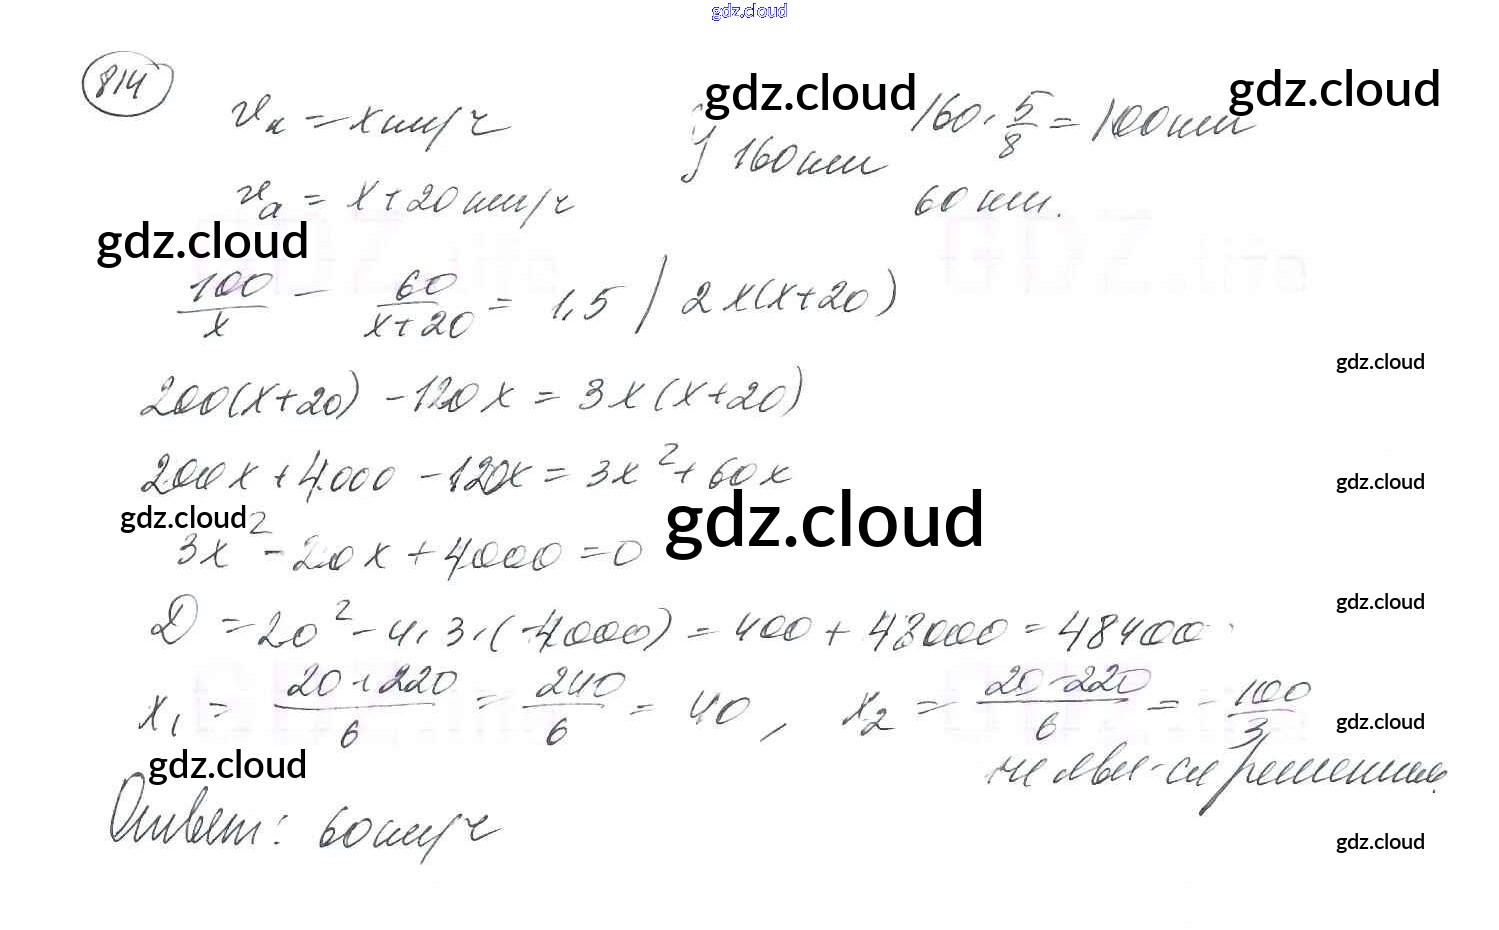 gdz.cloud
814
vа = x км/ч
gdz.cloud
160 · 5/8 = 100 км
gdz.cloud
S 160 км
vа = x + 20 км/ч
60 км.
gdz.cloud
100/x - 60/(x+20) = 1,5 / 2x(x+20)
gdz.cloud
200(x+20) - 120x = 3x(x+20)
200x + 4000 - 120x = 3x² + 60x
gdz.cloud
gdz.cloud
gdz.cloud
3x² - 20x + 4000 = 0
D = 20² - 4·3·(-4000) = 400 + 48000 = 48400
gdz.cloud
x₁ = (20+220)/6 = 240/6 = 40, x₂ = (20-220)/6 = -100/3
gdz.cloud
не явл-ся решением.
gdz.cloud
Ответ: 60 км/ч
gdz.cloud